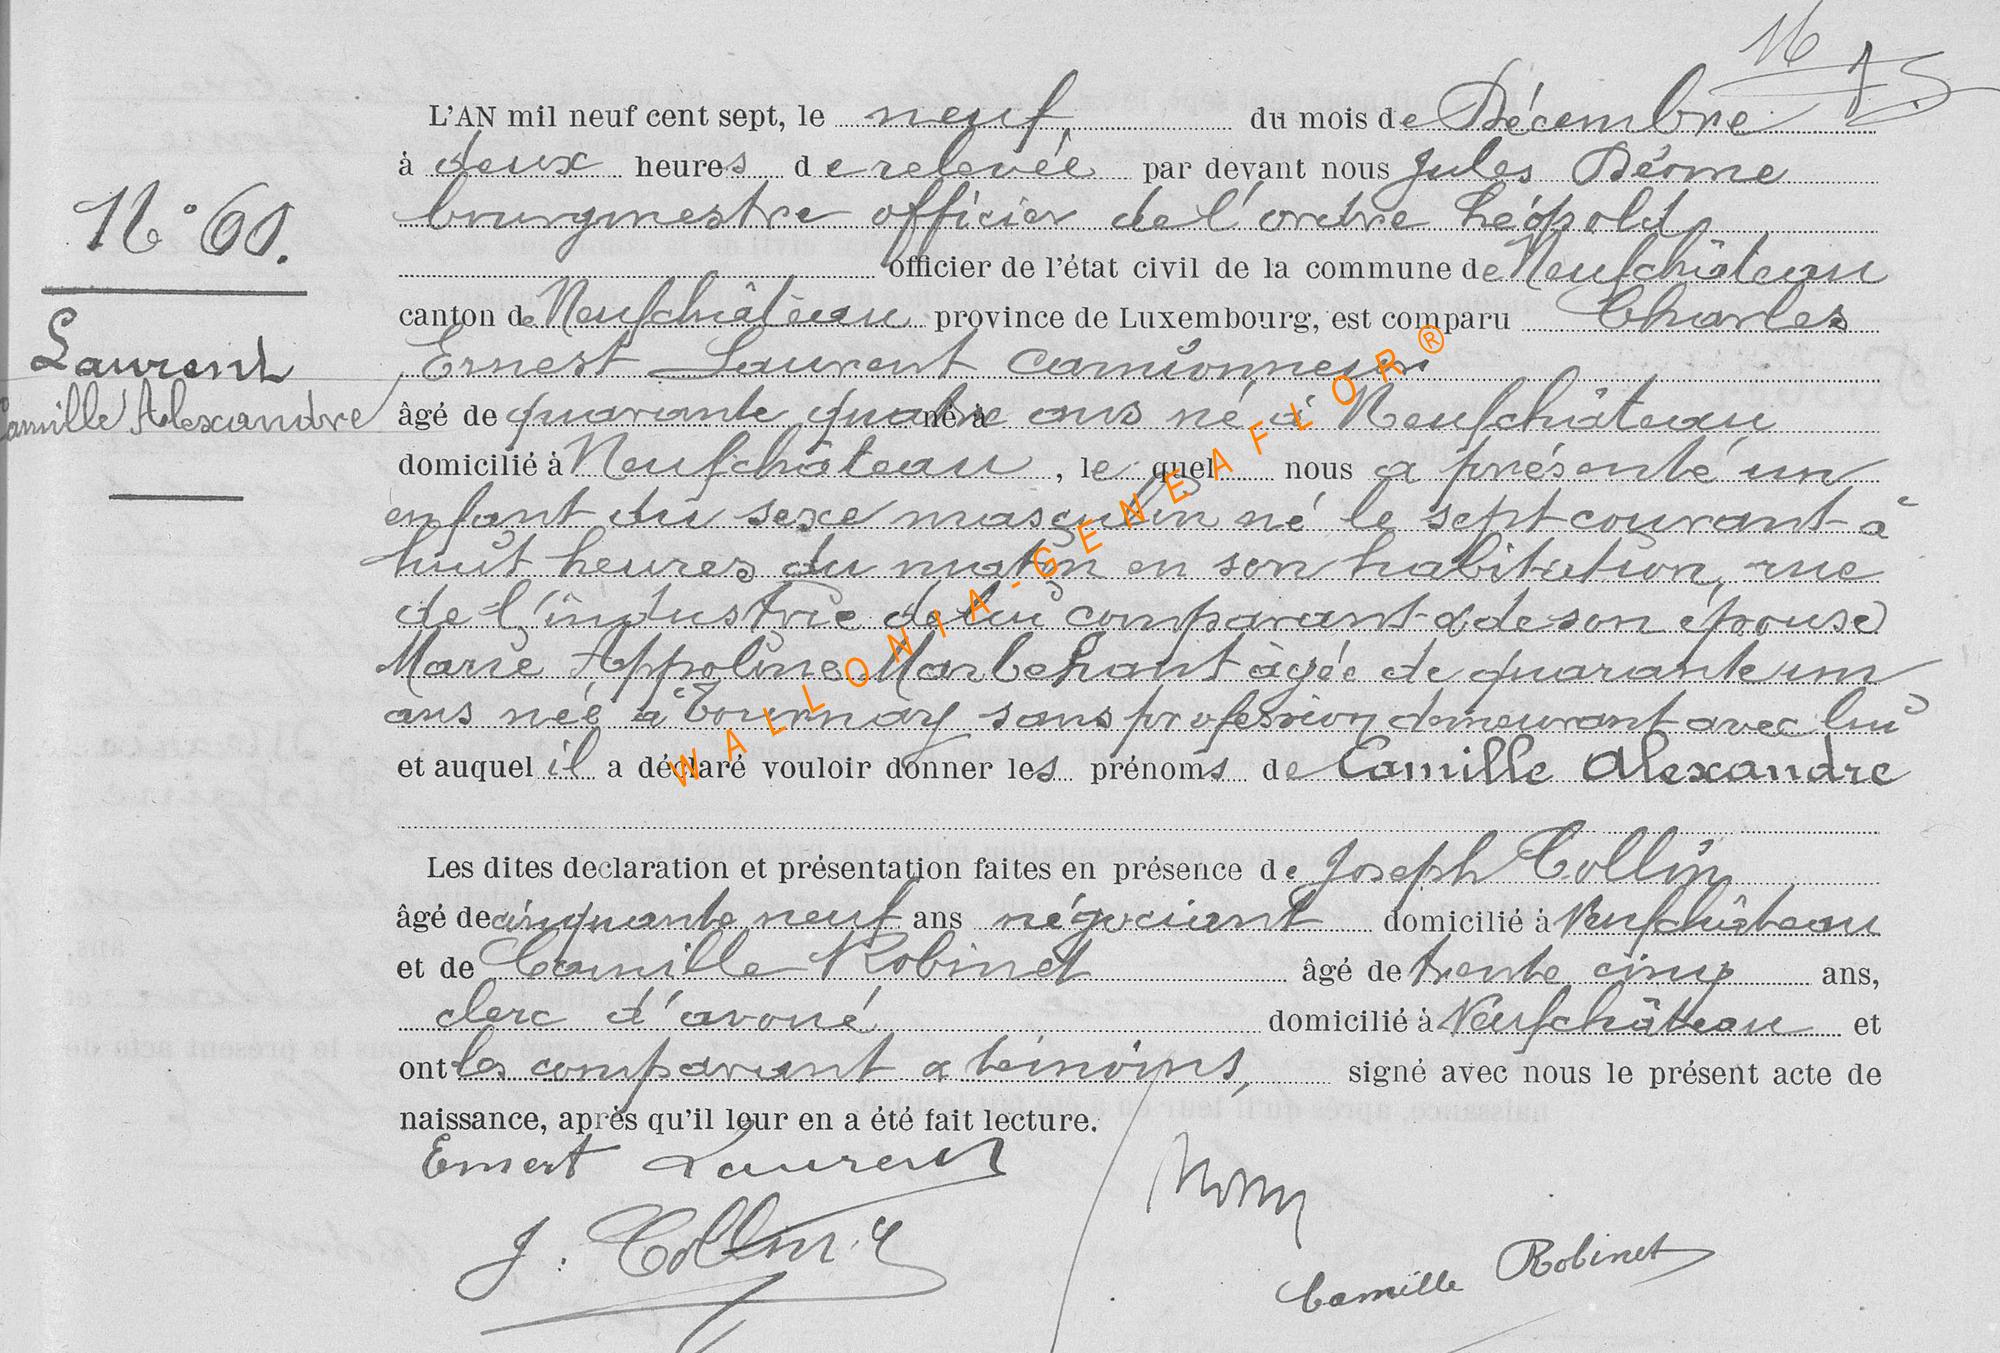 16
75
L'AN mil neuf cent sept, le neuf, du mois de Décembre
à deux heures de relevée par devant nous Jules Déome
N° 60.
bourgmestre officier de l'ordre Léopold,
officier de l'état civil de la commune de Neufchâteau
canton de Neufchâteau province de Luxembourg, est comparu Charles
Laurent
Ernest Laurent camionneur
Camille Alexandre
âgé de quarante quatre né à ans né à Neufchâteau
domicilié à Neufchâteau, lequel nous a présenté un
enfant du sexe masculin né le sept courant à
huit heures du matin en son habitation, rue
de l'industrie de lui comparant & de son épouse
Marie Appoline Marbehant âgée de quarante un
ans née à Tournay sans profession demeurant avec lui
et auquel il a déclaré vouloir donner les prénoms de Camille Alexandre
Les dites declaration et présentation faites en présence de Joseph Collin
âgé de cinquante neuf ans négociant domicilié à Neufchâteau
et de Camille Robinet âgé de trente cinq ans,
clerc d'avoué domicilié à Neufchâteau et
ont les comparant & témoins, signé avec nous le présent acte de
naissance, après qu'il leur en a été fait lecture.
Ernest Laurent
J. Collin
Camille Robinet
WALLONIA-GENEAFLOR®